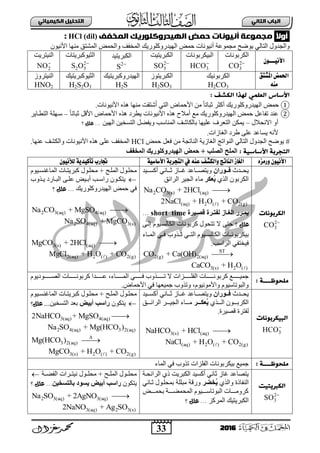 الباب الثاني
التحليل الكيميائي
أولاً مجموعة أنيونات حمض الهيدروكلوريك المخفف HCl (dil) :
والجدول التالي يوضح مجموعة أنيونات حمض الهيدروكلوريك المخفف والحمض المشتق منها الأنيون
الأنيـــون الكربونات البيكربونات الكبريتيت الكبريتيد الثيوكبريتات النيتريت
CO₃²⁻ HCO₃⁻ SO₃²⁻ S²⁻ S₂O₃²⁻ NO₂⁻
الحمض المشتق منه الكربونيك الكبريتوز الهيدروكبريتيك الثيوكبريتيك النيتروز
H₂CO₃ H₂SO₃ H₂S H₂S₂O₃ HNO₂
الأساس العلمي لهذا الكشف :
① حمض الهيدروكلوريك أكثر ثباتاً من الأحماض التي أشتقت منها هذه الأنيونات.
② عند تفاعل حمض الهيدروكلوريك مع أملاح هذه الأنيونات يطرد هذه الأحماض الأقل ثباتاً – سهلة التطاير
أو الانحلال – يمكن التعرف عليها بالكاشف المناسب ويفضل التسخين الهين
لأنه يساعد علي طرد الغازات.
يوضح الجدول التالي النواتج الغازية الناتجة من فعل حمض HCl المخفف على هذه الأنيونات والكشف عنها.
التجربة الأساسية : الملح الصلب + حمض الهيدروكلوريك المخفف
الأنيون ورمزه
الغاز الناتج والكشف عنه في التجربة الأساسية
تجارب تأكيدية للأنيون
الكربونات
CO₃²⁻
يحدث فوران ويتصاعد غاز ثاني أكسيد
الكربون الذي يعكر ماء الجير الرائق
Na₂CO₃(s) + 2HCl(aq) ⟶
2NaCl(aq) + H₂O(ℓ) + CO₂(g)
يمرر الغاز لفترة قصيرة short time ...
علل ؟ حتى لا تتحول كربونات الكالسيوم إلى
بيكربونات الكالسيوم التي تذوب في الماء
فيختفي الراسب.
CO₂(g) + Ca(OH)₂(aq) ⟶ ST
CaCO₃(s) + H₂O(ℓ)
محلول الملح + محلول كبريتات الماغنسيوم
← يتكون راسب أبيض على البارد يذوب
في حمض الهيدروكلوريك ... علل ؟
Na₂CO₃(aq) + MgSO₄(aq) ⟶
Na₂SO₄(aq) + MgCO₃(s)
MgCO₃(s) + 2HCl(aq) ⟶
MgCl₂(aq) + H₂O(ℓ) + CO₂(g)
ملحوظــة :
جميع كربونات الفلزات لا تذوب في الماء، عدا كربونات الصوديوم
والبوتاسيوم والأمونيوم، وتذوب جميعها في الأحماض.
البيكربونات
HCO₃⁻
يحدث فوران ويتصاعد غاز ثاني أكسيد
الكربون الذي يعكر ماء الجير الرائق
لفترة قصيرة.
NaHCO₃(s) + HCl(aq) ⟶
NaCl(aq) + H₂O(ℓ) + CO₂(g)
محلول الملح + محلول كبريتات الماغنسيوم
← يتكون راسب أبيض بعد التسخين... علل ؟
2NaHCO₃(aq) + MgSO₄(aq) ⟶
Na₂SO₄(aq) + Mg(HCO₃)₂(aq)
Mg(HCO₃)₂(aq) ⟶ Δ
MgCO₃(s) + H₂O(ℓ) + CO₂(g)
ملحوظــة :
جميع بيكربونات الفلزات تذوب في الماء
الكبريتيت
SO₃²⁻
يتصاعد غاز ثاني أكسيد الكبريت ذي الرائحة
النفاذة والذي يُخضر ورقة مبللة بمحلول ثاني
كرومات البوتاسيوم المحمضة بحمض
الكبريتيك المركز ... علل ؟
محلول الملح + محلول نيترات الفضة ←
يتكون راسب أبيض يسود بالتسخين... علل ؟
Na₂SO₃(aq) + 2AgNO₃(aq) ⟶
2NaNO₃(aq) + Ag₂SO₃(s)
33
2016